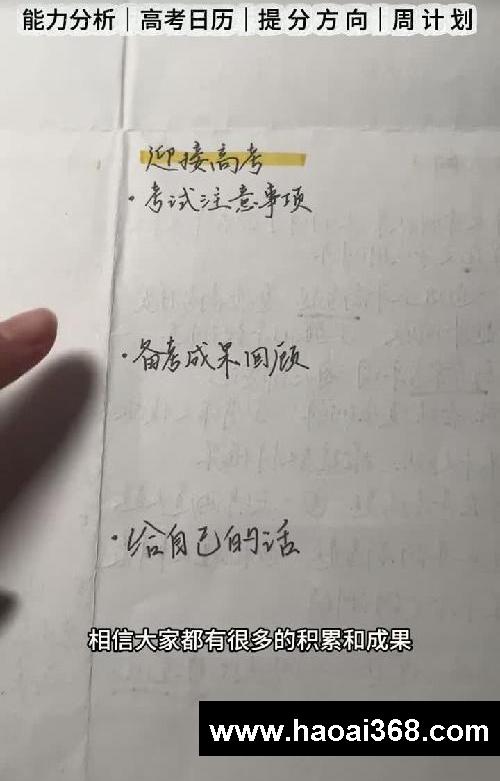 能力分析｜高考日历｜提分方向｜周计划
迎接高考
· 考试注意事项
· 备考成果回顾
· 给自己的话
相信大家都有很多的积累和成果
www.haoai368.com